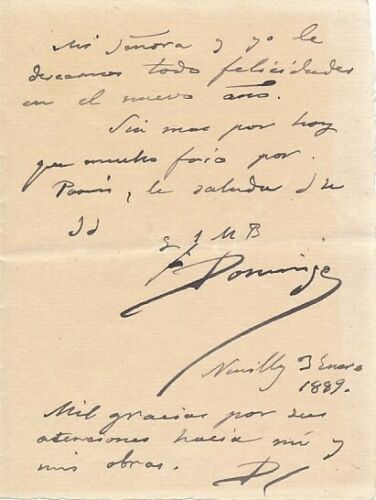 Mi señora y yo le
deseamos todo felicidades
en el nuevo año.
Sin mas por hoy
que mucho frio por
Paris, le saluda su
SS
q 1 M B
F. Domingo
Neuilly 3 Enero
1889.
Mil gracias por sus
atenciones hacia mi y
mis obras.
D